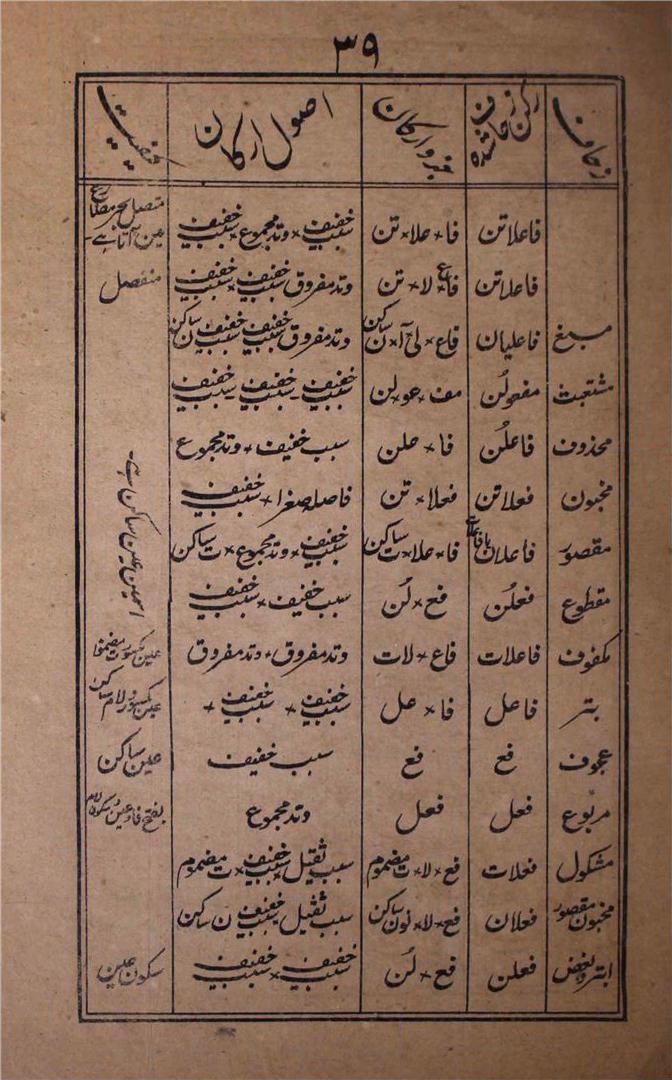 ۳۹
زحاف رکن زحاف شدہ جزو ارکان اصول ارکان کیفیت
فاعلاتن فا × علا × تن سبب خفیف × وتد مجموع × سبب خفیف متصل بحر مضارع میں آتا ہے۔
فاعلاتن فاع × لا × تن وتد مفروق سبب خفیف × سبب خفیف منفصل
مسبغ فاعلیان فاع × لی آ × ن ساکن وتد مفروق سبب خفیف سبب خفیف ن ساکن
مشتعبث مفعولُن مف × عو × لن سبب خفیف - سبب خفیف - سبب خفیف
محذوف فاعلُن فا × علن سبب خفیف + وتد مجموع
مخبون فعلاتن فعلا × تن فاصلہ صغرا × سبب خفیف
مقصور فاعلان یا فاعلات فا × علا × ت ساکن سبب خفیف × وتد مجموع × ت ساکن
مقطوع فعلُن فع × لُن سبب خفیف × سبب خفیف اسمین عین ساکن ہے۔
مکفوف فاعلات فاع × لات وتد مفروق + وتد مفروق عین مکسور ت مضموم
بتر فاعل فا × عل سبب خفیف × سبب خفیف + عین مکسور و لام ساکن
عجوف فع فع سبب خفیف عین ساکن
مربوع فعل فعل وتد مجموع بفتح فا و عین و سکون لام
مشکول فعلات فع × لا × ت مضموم سبب ثقیل × سبب خفیف × ت مضموم
مخبون مقصور فعلان فع × لا × نون ساکن سبب ثقیل سبب خفیف ن ساکن
ابتر فعلن فع × لُن سبب خفیف × سبب خفیف سکون عین